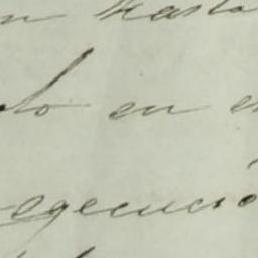 n hasta
do en e
egecució